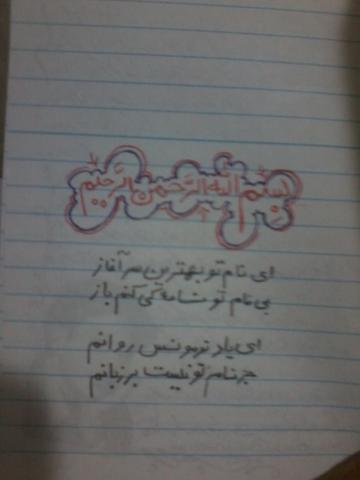 بسم الله الرحمن الرحیم
ای نام تو بهترین سرآغاز
بی نام تو نامه کی کنم باز
ای یاد تو مونس روانم
جز نام تو نیست بر زبانم